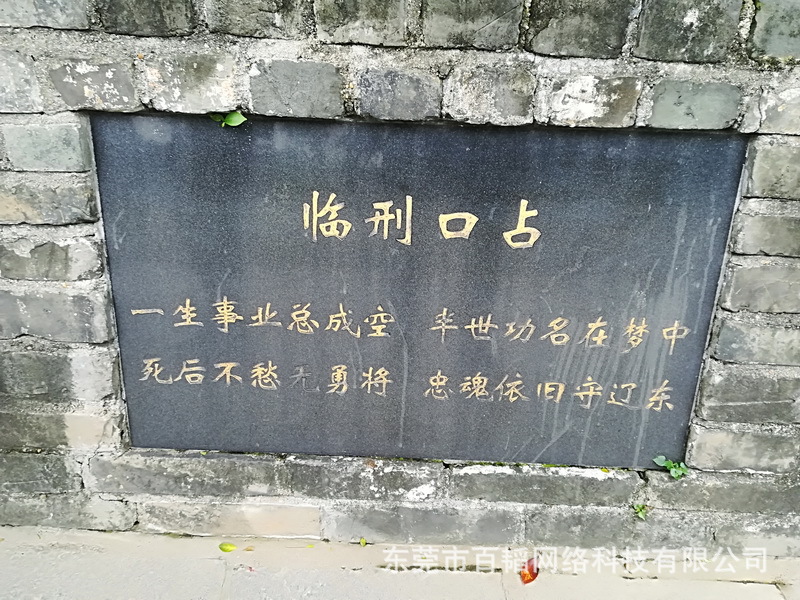 临刑口占
一生事业总成空 半世功名在梦中
死后不愁无勇将 忠魂依旧守辽东
东莞市百韬网络科技有限公司